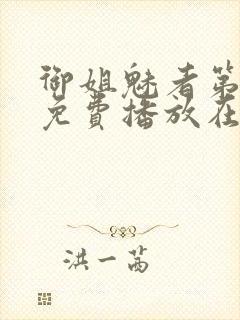 御姐魅者第
免費播放在
洪一茜